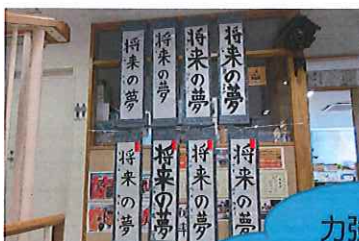 将来の夢
将来の夢
将来の夢
将来の夢
将来の夢
将来の夢
将来の夢
将来の夢
力強